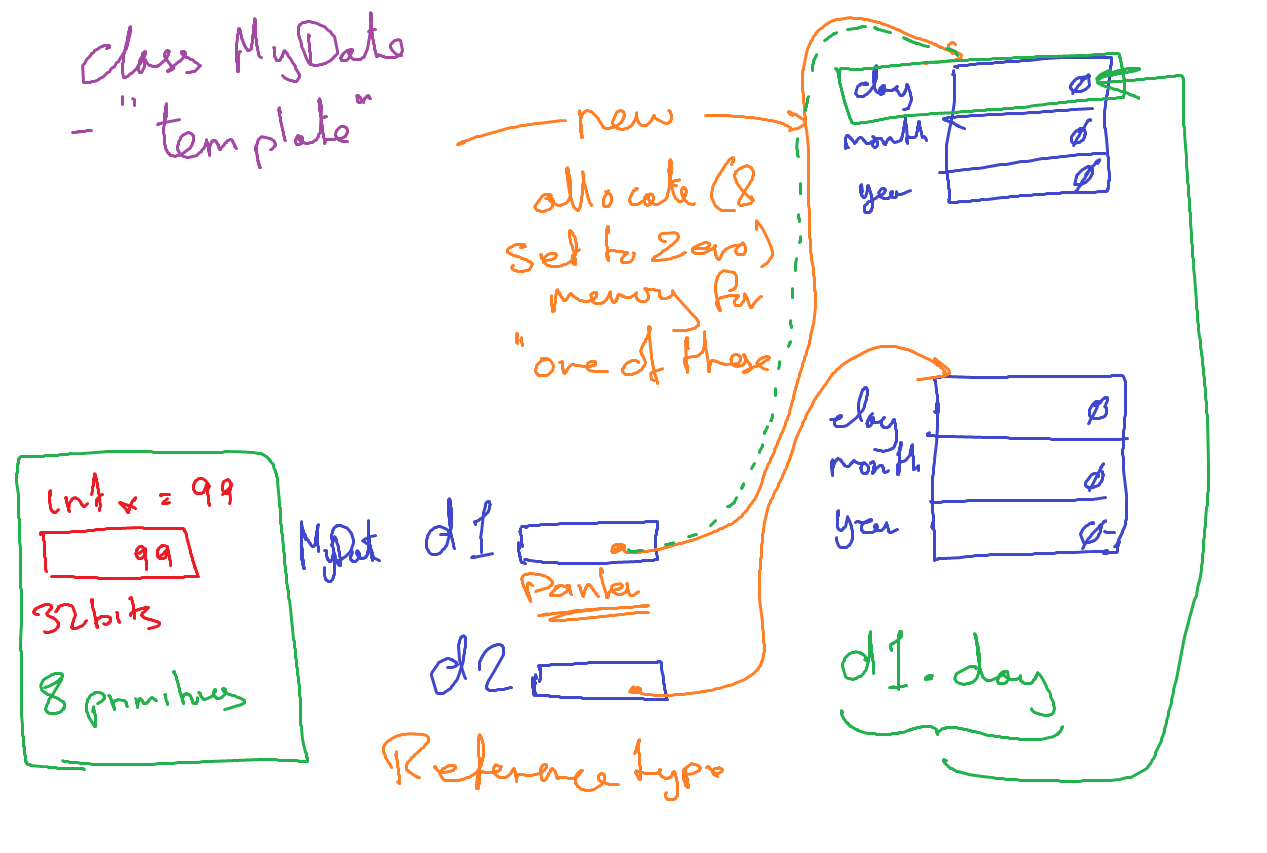 class MyDate
- "template"
new
allocate (&
set to zero)
memory for
"one of these
day 0
month 0
year 0
day 0
month 0
year 0
int x = 99
99
32 bits
8 primitives
MyDat d1
Pointer
d2
Reference type
d1.day